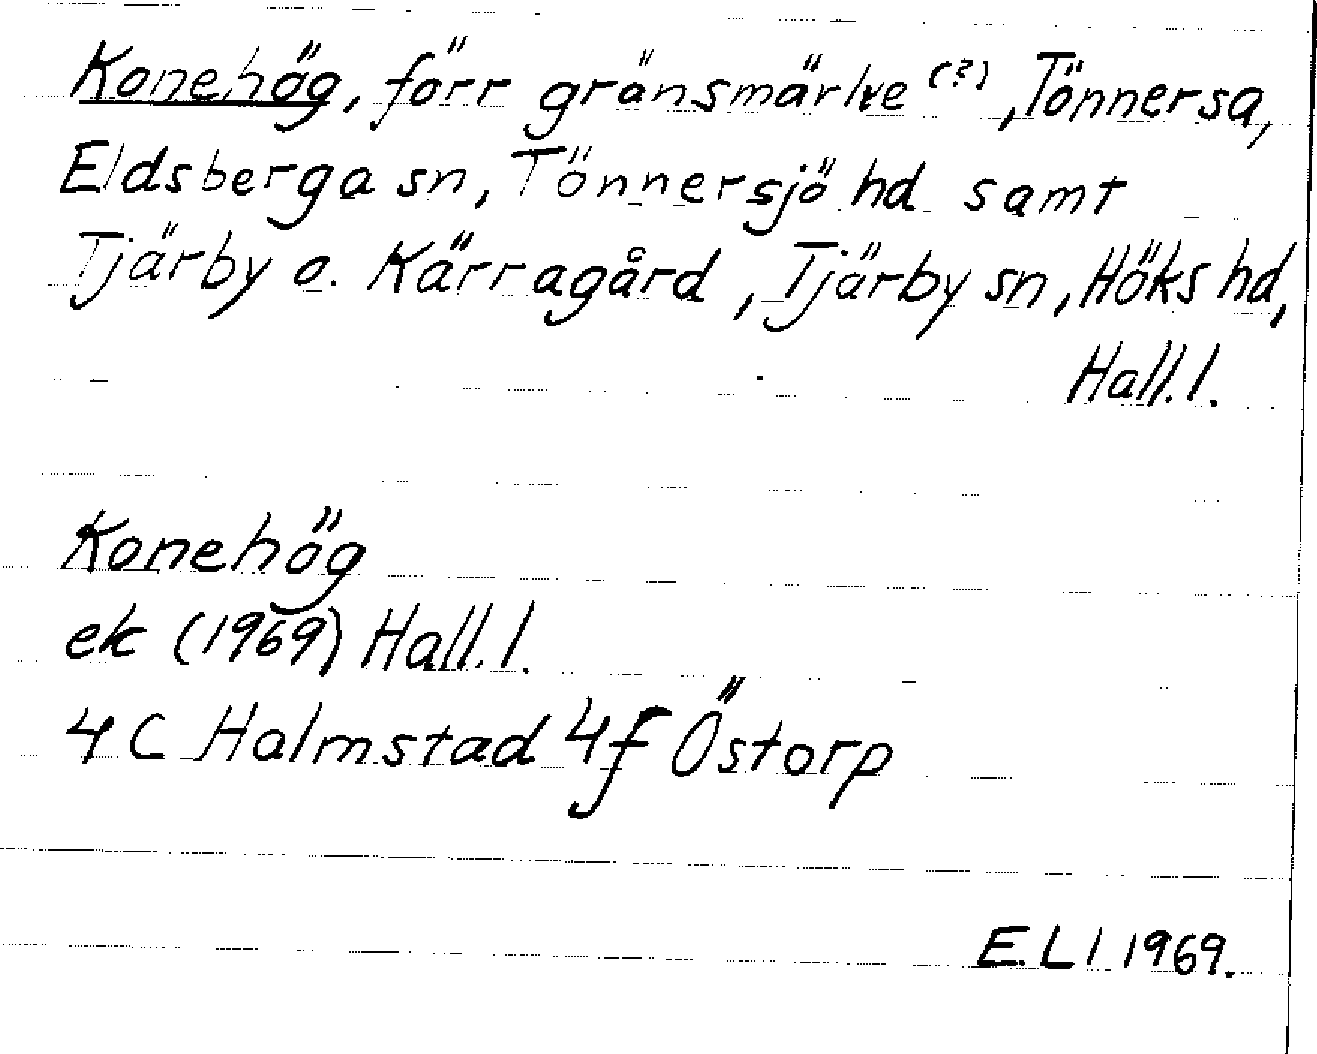 Konehög, förr gränsmärke (?), Tönnersa,
Eldsberga sn, Tönnersjö hd samt
Tjärby o. Kärragård, Tjärby sn, Höks hd,
Hall. l.
Konehög
ek (1969) Hall. l.
4 C Halmstad 4f Östorp
E. Ll 1969.